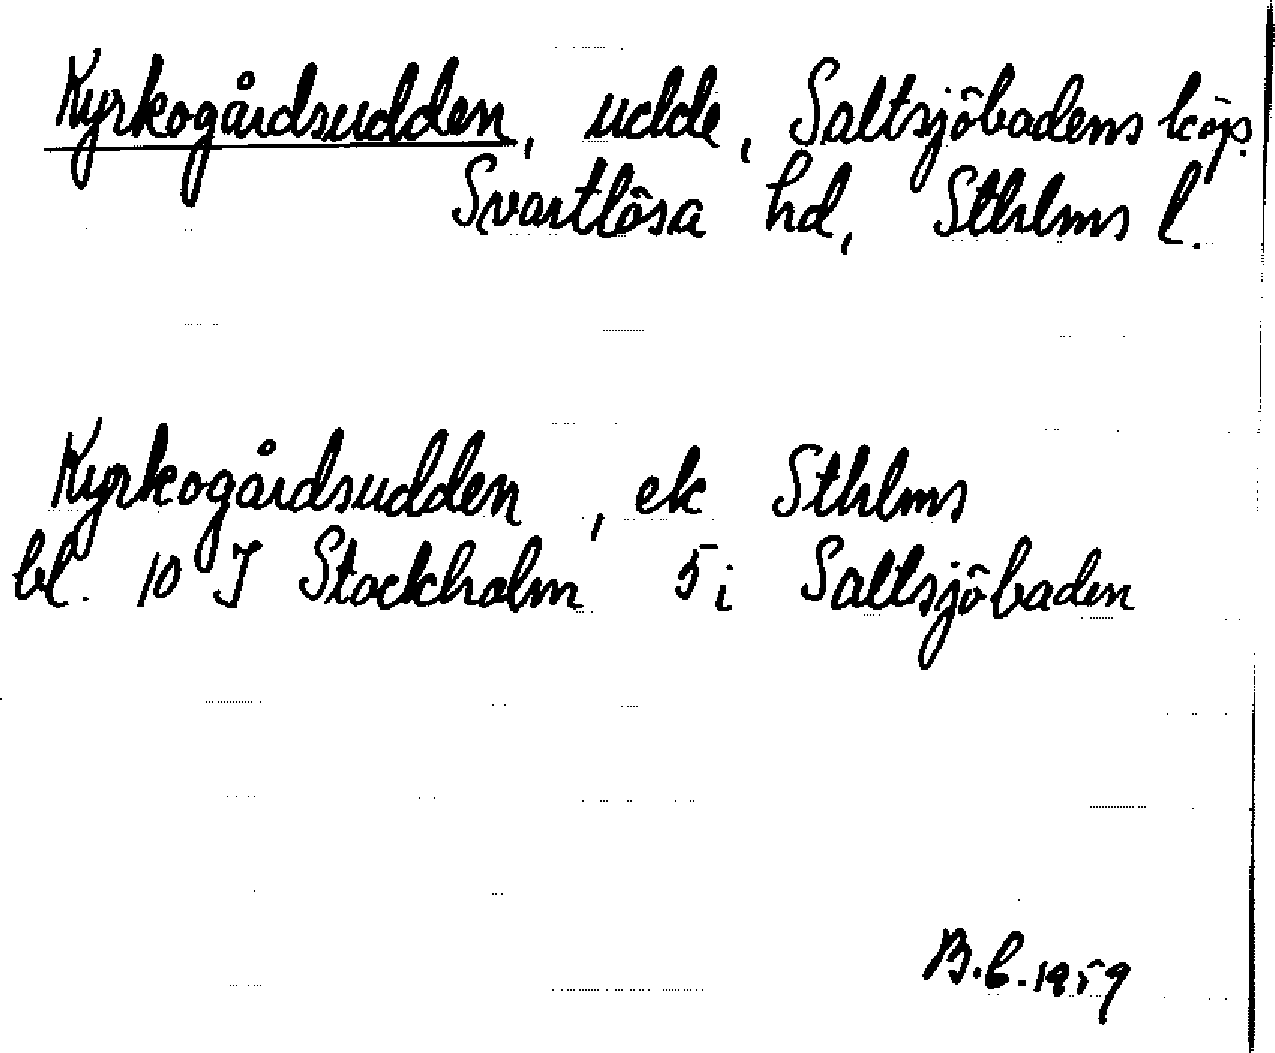 Kyrkogårdsudden, udde, Saltsjöbadens köp.
Svartlösa hd, Sthlms l.
Kyrkogårdsudden, ek Sthlms
bl. 10 I Stockholm 5 i Saltsjöbaden
B.L. 1959